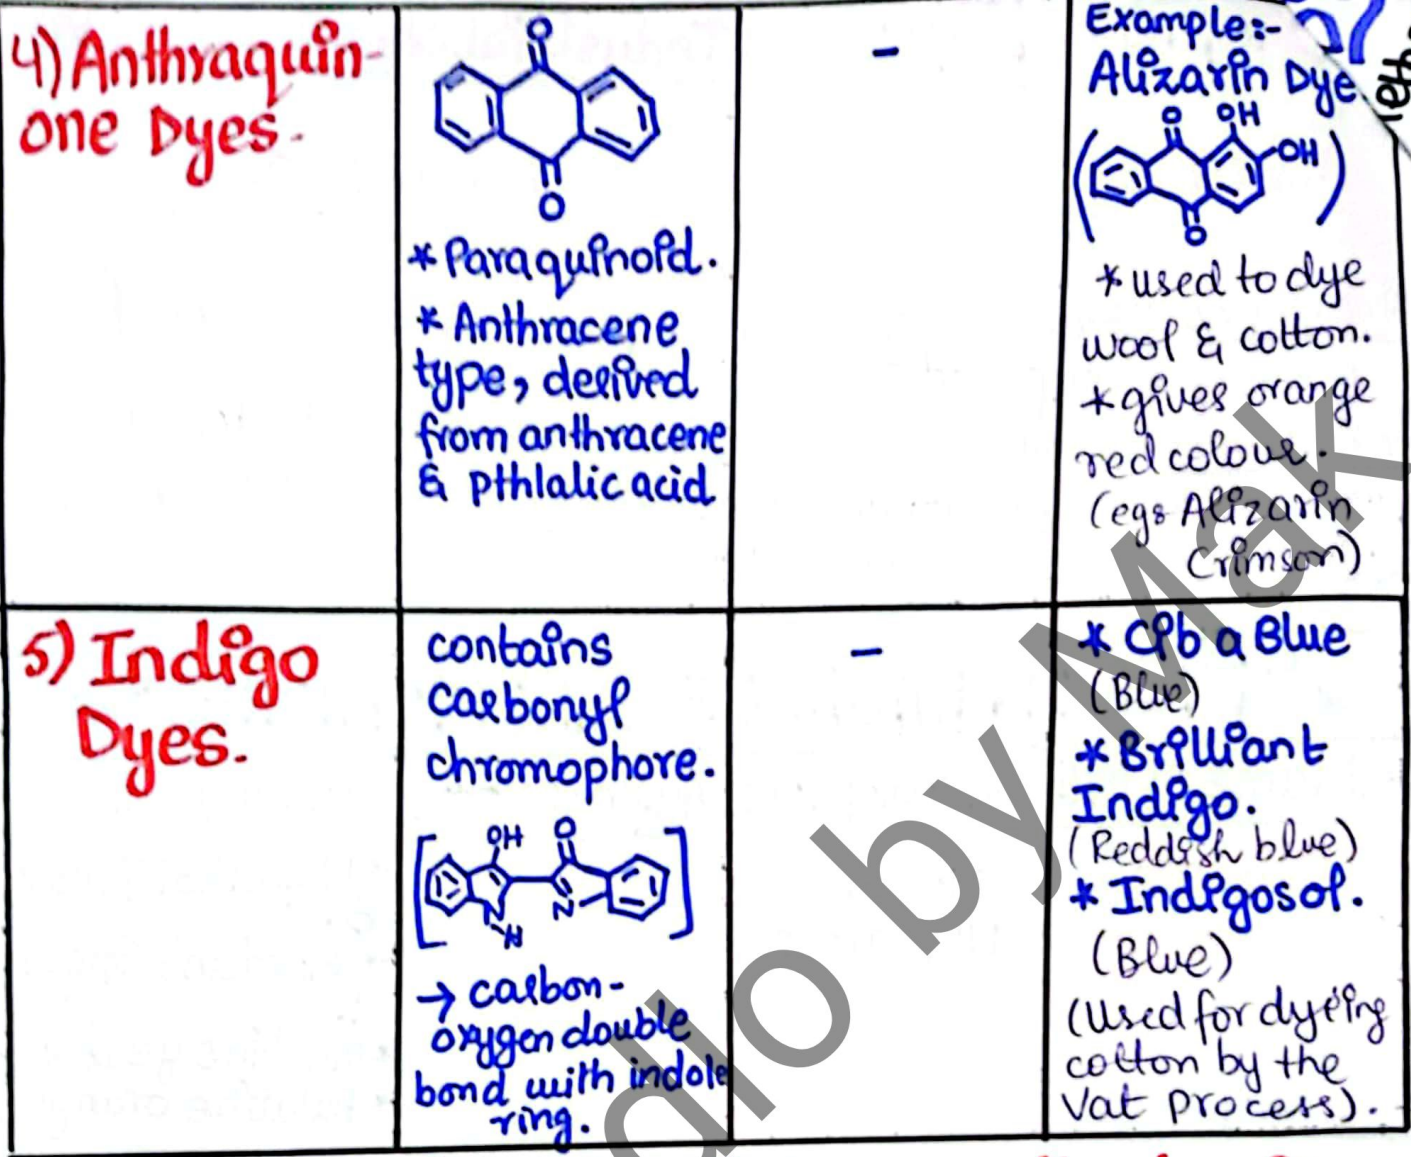 4) Anthraquin-
one Dyes.
O
O
* Paraquinoid.
* Anthracene
type, derived
from anthracene
& pthlalic acid
-
Example:-
Alizarin Dye
O OH
OH
O
* used to dye
wool & cotton.
* gives orange
red colour.
(egs Alizarin
Crimson)
5) Indigo
Dyes.
contains
carbonyl
chromophore.
OH O
N N
H
→ carbon-
oxygen double
bond with indole
ring.
-
* Ciba Blue
(Blue)
* Brilliant
Indigo.
(Reddish blue)
* Indigosol.
(Blue)
(Used for dyeing
cotton by the
Vat process).
dio by Mak